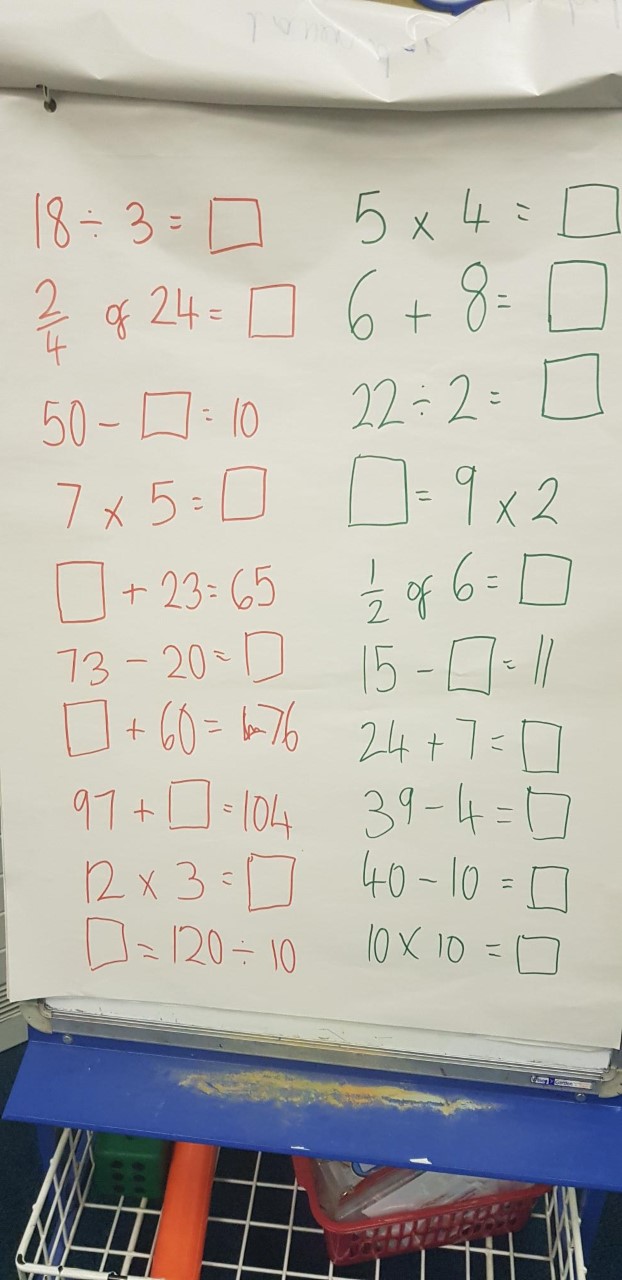 18 ÷ 3 = □
2/4 of 24 = □
50 - □ = 10
7 x 5 = □
□ + 23 = 65
73 - 20 = □
□ + 60 = 76
97 + □ = 104
12 x 3 = □
□ = 120 ÷ 10
5 x 4 = □
6 + 8 = □
22 ÷ 2 = □
□ = 9 x 2
1/2 of 6 = □
15 - □ = 11
24 + 7 = □
39 - 4 = □
40 - 10 = □
10 x 10 = □